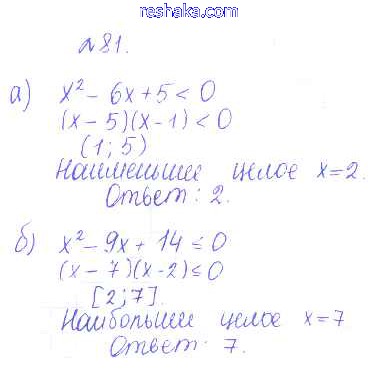 www.
reshaka.com
№81.
а) x² - 6x + 5 < 0
(x - 5)(x - 1) < 0
(1; 5)
Наименьшее целое x = 2.
Ответ: 2.
б) x² - 9x + 14 ≤ 0
(x - 7)(x - 2) ≤ 0
[2; 7].
Наибольшее целое x = 7
Ответ: 7.